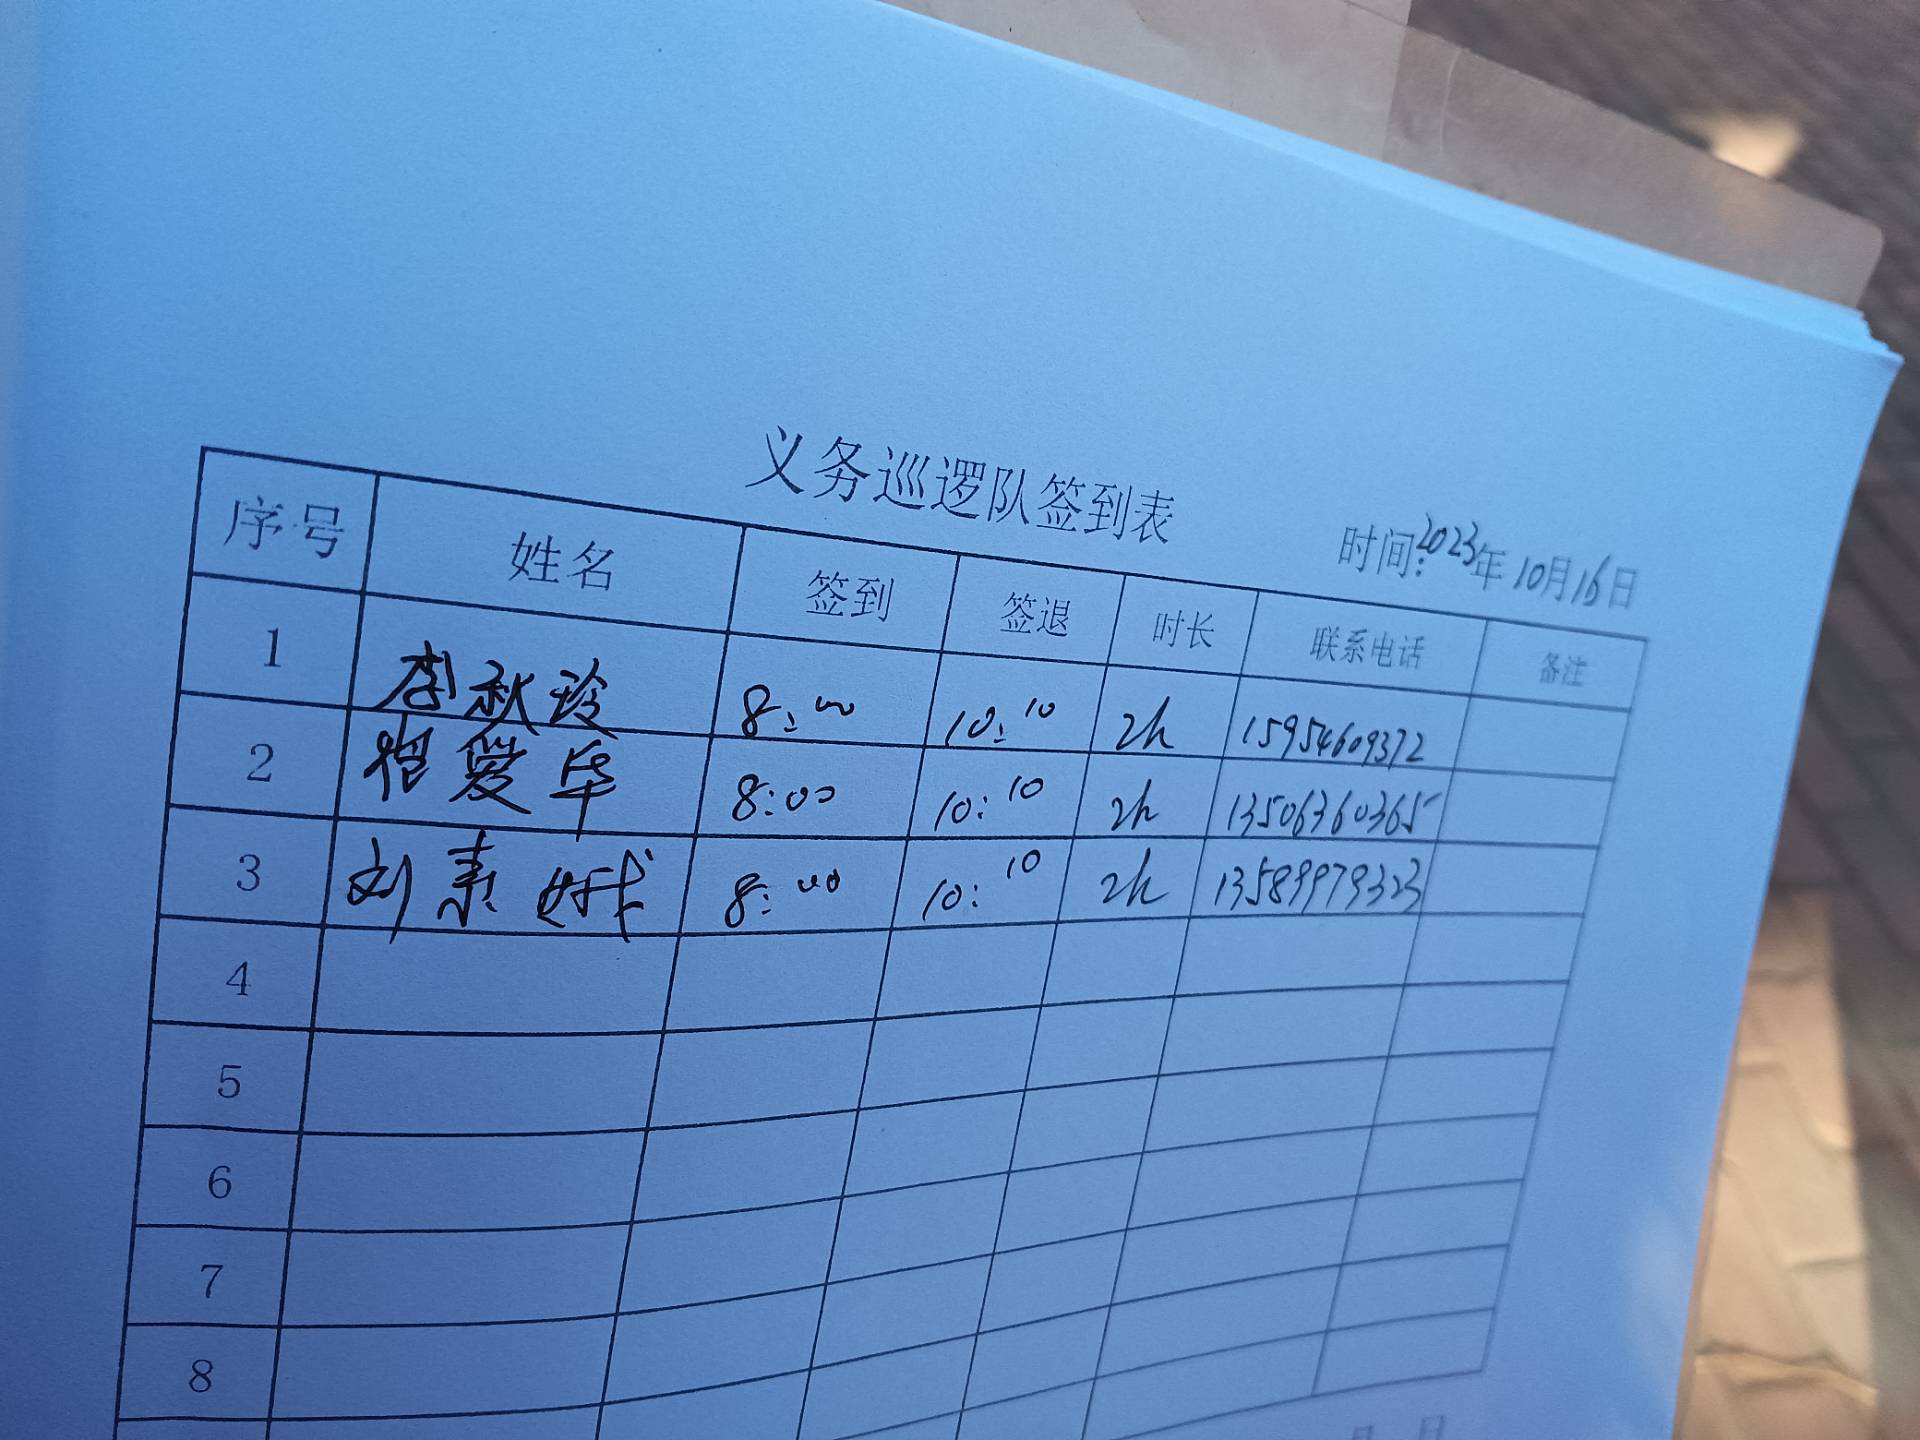 义务巡逻队签到表
时间:2023年10月16日
序号 姓名 签到 签退 时长 联系电话 备注
1 李秋玲 8:00 10:10 2h 15954609372
2 爱华 8:00 10:10 2h 13506360365
3 刘素 8:00 10:10 2h 13589979323
4
5
6
7
8
月 日